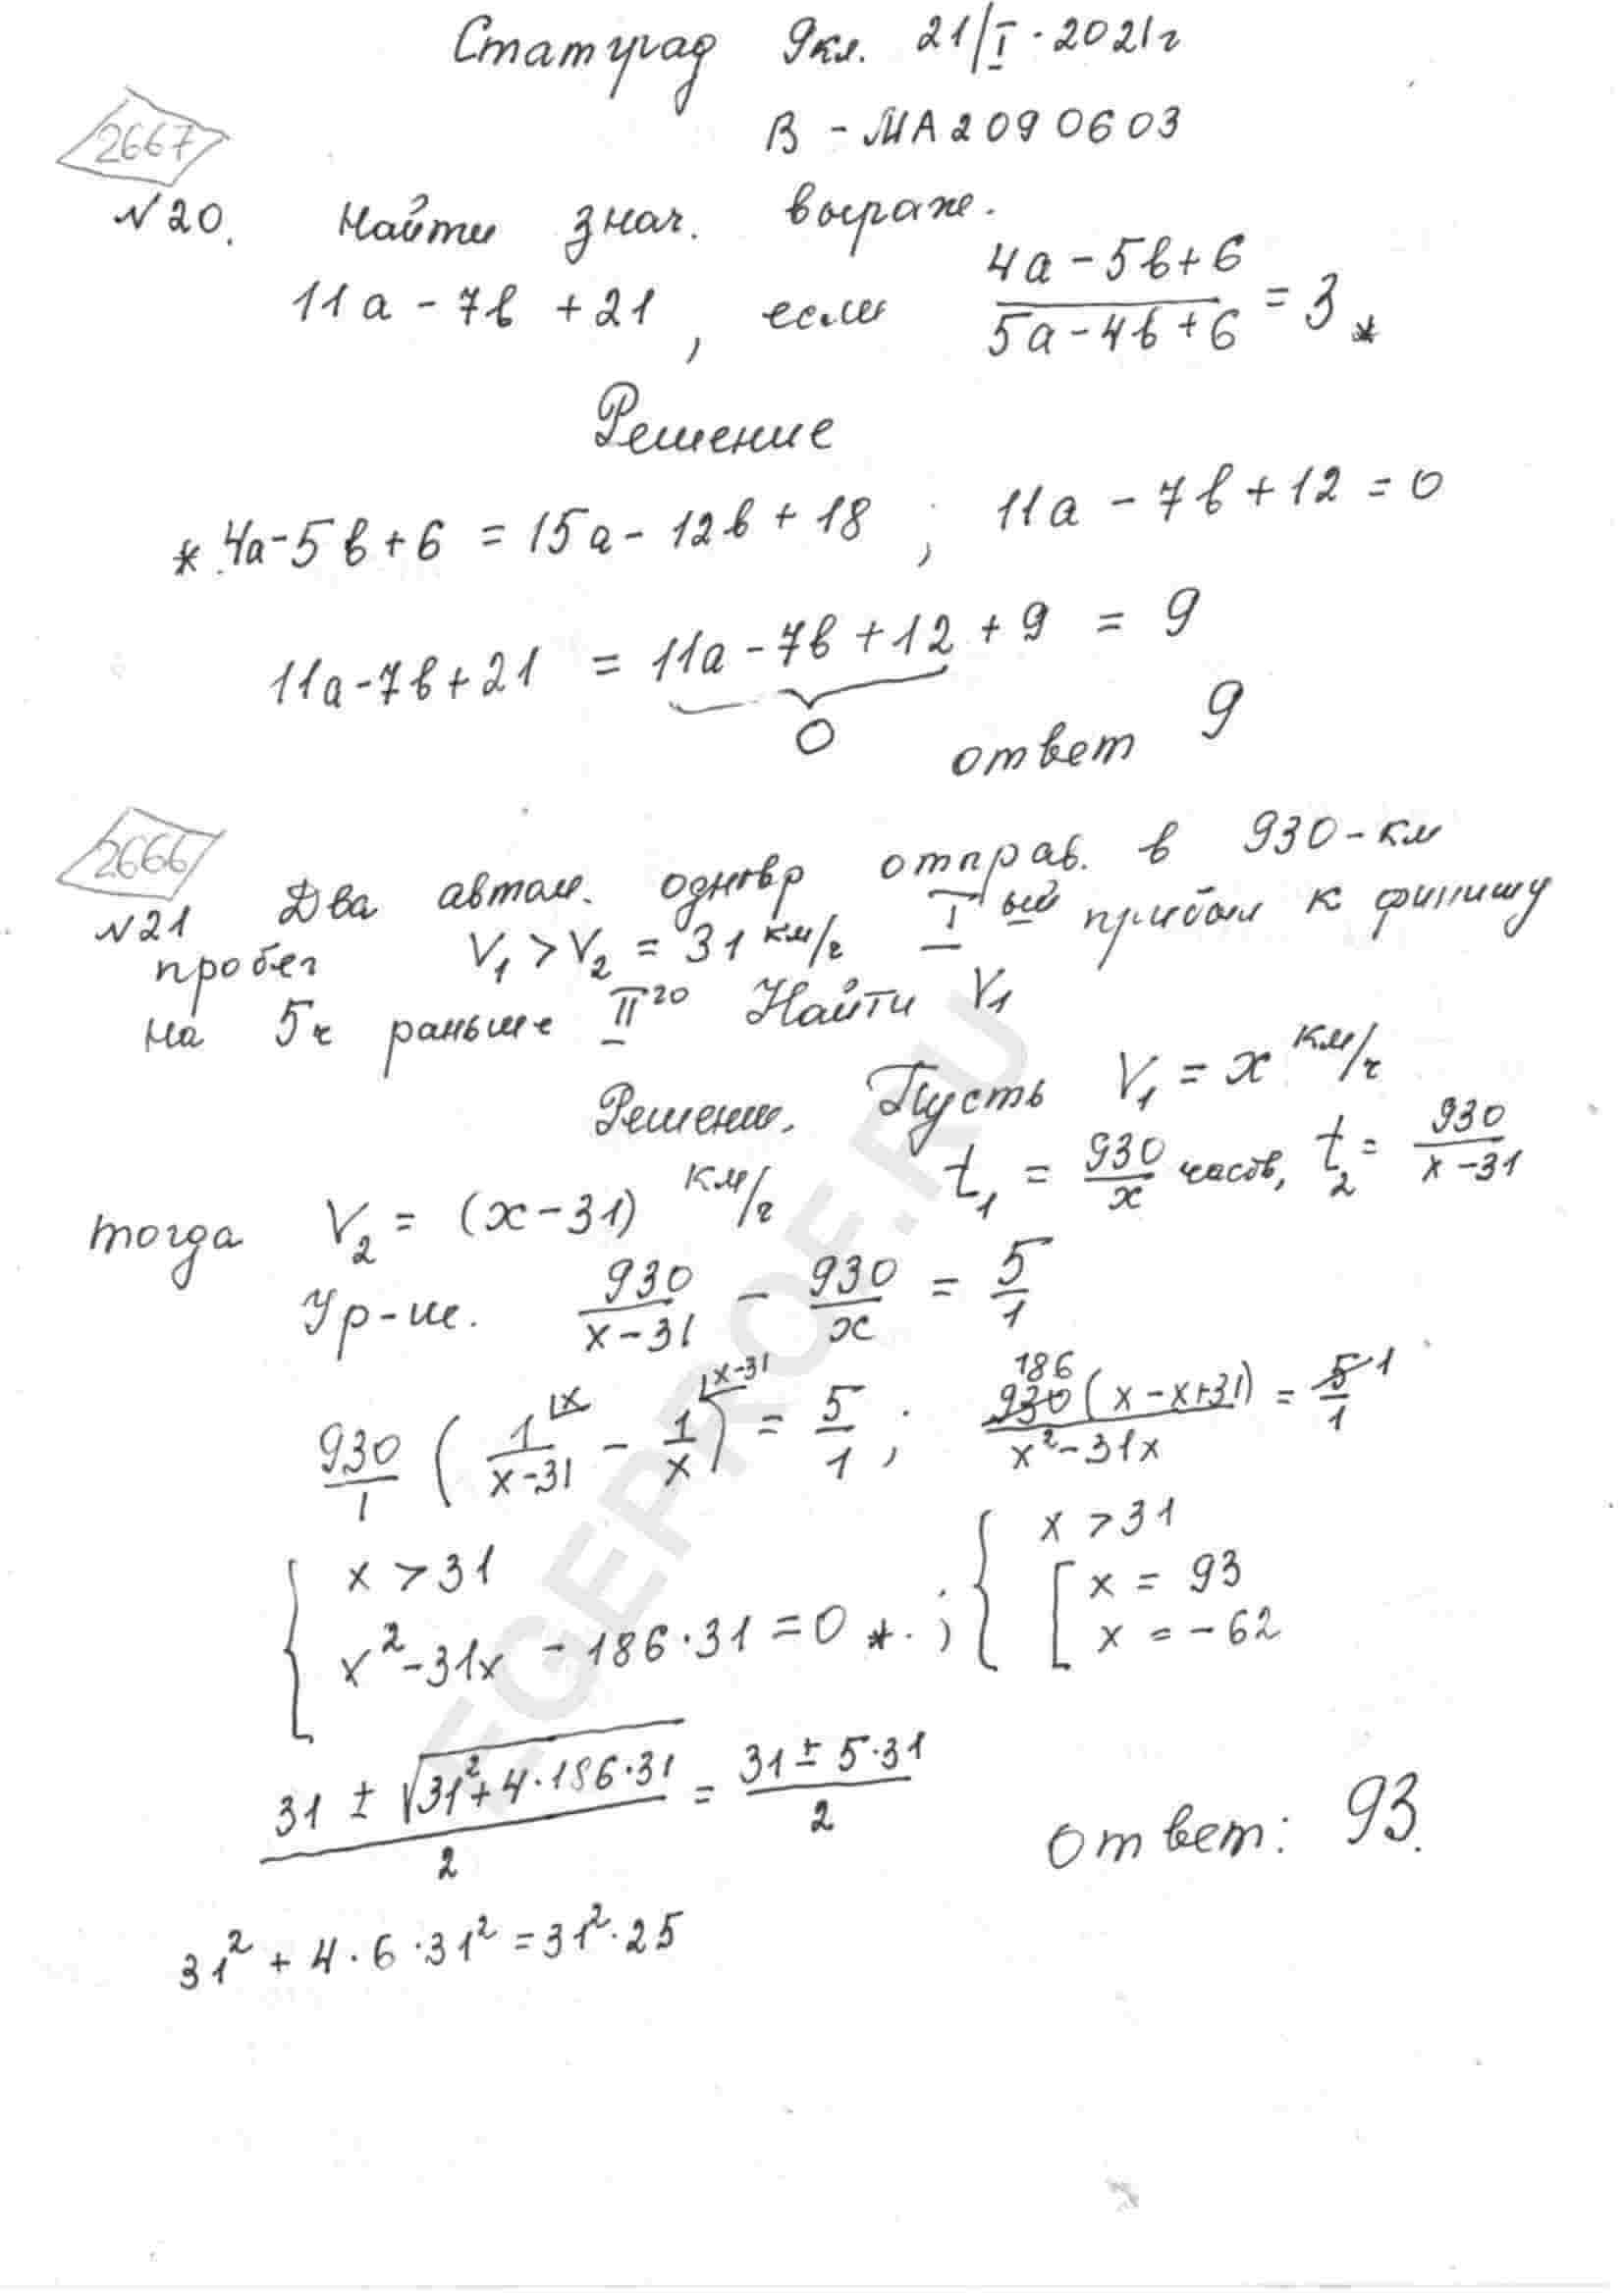 Статград 9кл. 21/I·2021г
В - МА2090603
2667
№20. Найти знач. выраж.
11a - 7b + 21, если (4a - 5b + 6)/(5a - 4b + 6) = 3 *
Решение
* 4a - 5b + 6 = 15a - 12b + 18 ; 11a - 7b + 12 = 0
11a - 7b + 21 = 11a - 7b + 12 + 9 = 9
0
ответ 9
2666
№21 Два автом. одновр отправ. в 930-км
пробег V₁ > V₂ = 31 км/ч I ый прибыл к финишу
на 5ч раньше II го Найти V₁
Решение. Пусть V₁ = x км/ч
тогда V₂ = (x - 31) км/ч t₁ = 930/x часов, t₂ = 930/(x - 31)
Ур-ие. 930/(x - 31) - 930/x = 5/1
930/1 (1/(x - 31) - 1/x) = 5/1 ; 930 (x - x + 31)/(x² - 31x) = 5/1
x x-31 186 1
{ x > 31 { x > 31
x² - 31x - 186·31 = 0 * ; [ x = 93
x = -62
(31 ± √(31² + 4·186·31))/2 = (31 ± 5·31)/2
ответ: 93.
31² + 4·6·31² = 31²·25
EGEPROF.RU